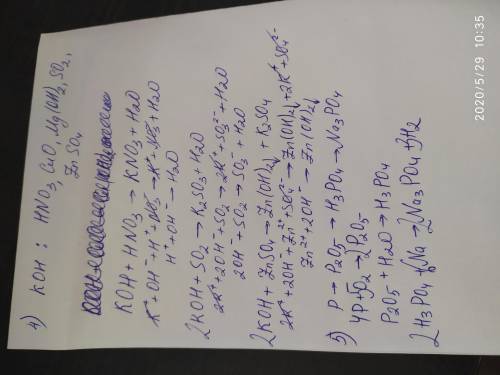 4) KOH : HNO3, CuO, Mg(OH)2, SO2,
ZnSO4
KOH + HNO3 → KNO3 + H2O
K⁺ + OH⁻ + H⁺ + NO3⁻ → K⁺ + NO3⁻ + H2O
H⁺ + OH⁻ → H2O
2KOH + SO2 → K2SO3 + H2O
2K⁺ + 2OH⁻ + SO2 → 2K⁺ + SO3²⁻ + H2O
2OH⁻ + SO2 → SO3⁻ + H2O
2KOH + ZnSO4 → Zn(OH)2↓ + K2SO4
2K⁺ + 2OH⁻ + Zn²⁺ + SO4²⁻ → Zn(OH)2↓ + 2K⁺ + SO4²⁻
Zn²⁺ + 2OH⁻ → Zn(OH)2↓
5) P → P2O5 → H3PO4 → Na3PO4
4P + 5O2 → 2P2O5
P2O5 + H2O → H3PO4
2H3PO4 + 6Na → 2Na3PO4 + 3H2
2020/5/29 10:35